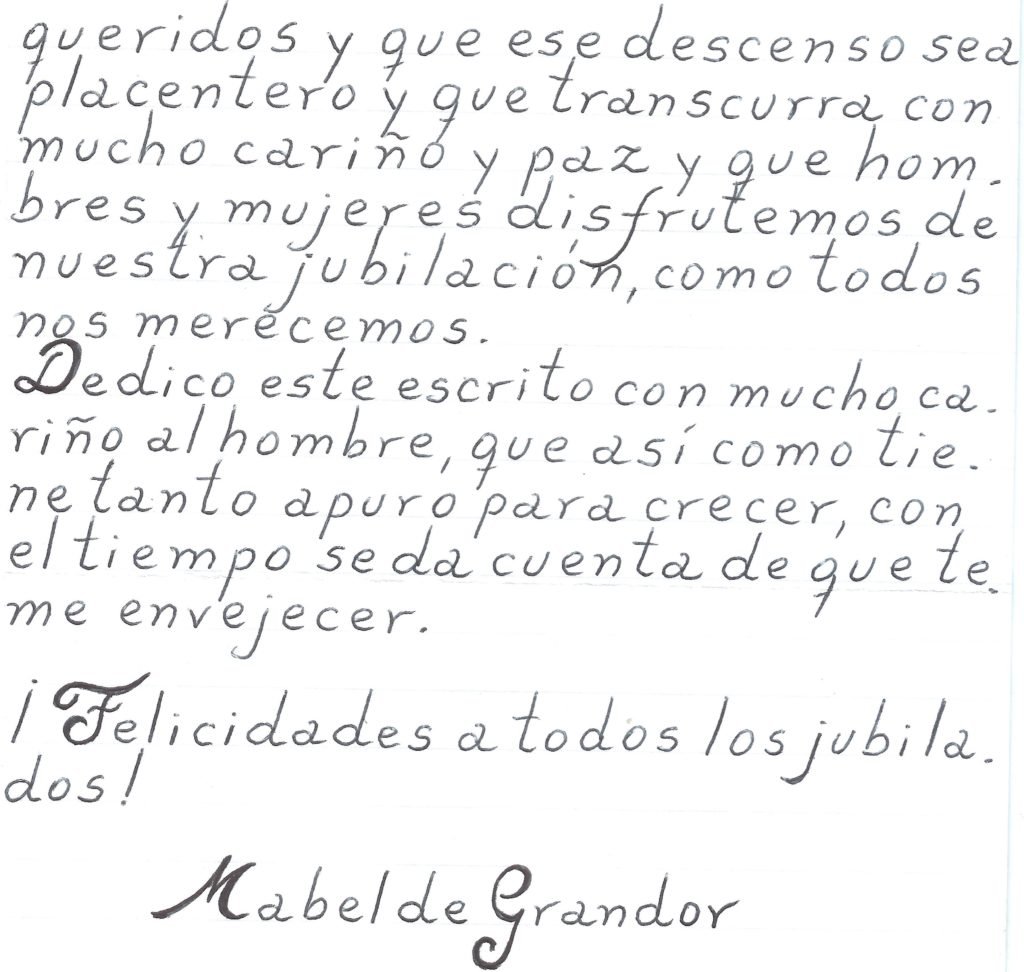 queridos y que ese descenso sea
placentero y que transcurra con
mucho cariño y paz y que hom-
bres y mujeres disfrutemos de
nuestra jubilación, como todos
nos merecemos.
Dedico este escrito con mucho ca-
riño al hombre, que así como tie-
ne tanto apuro para crecer, con
el tiempo se da cuenta de que te-
me envejecer.
¡Felicidades a todos los jubila-
dos!
Mabel de Grandor